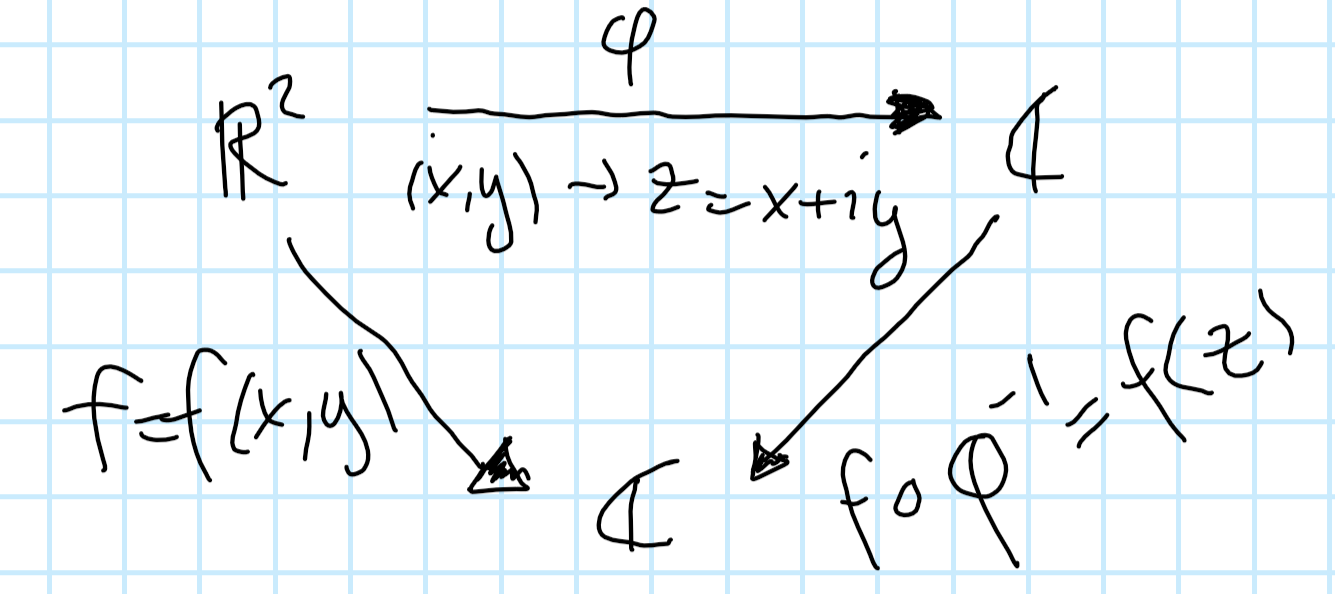 φ
ℝ² ℂ
(x,y) → z = x+iy
f=f(x,y)
f∘φ⁻¹ = f(z)
ℂ